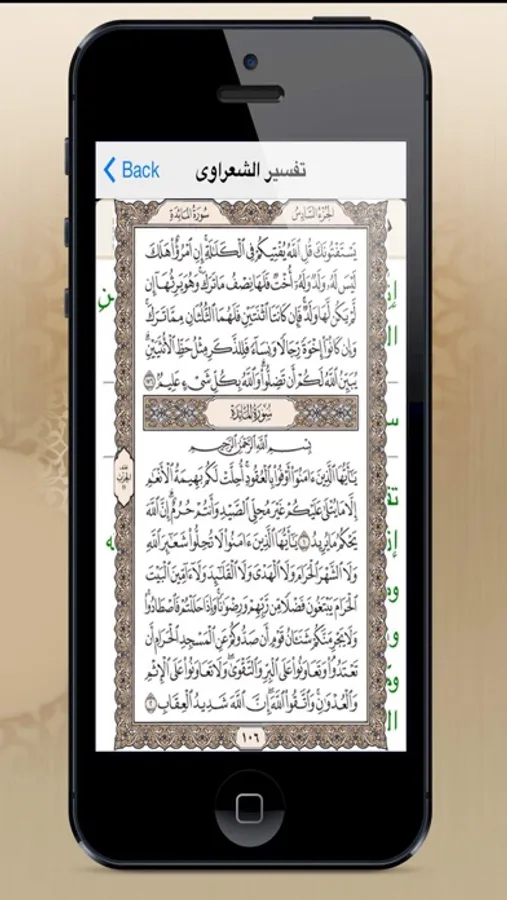 Back
تفسير الشعراوى
سُورَةُ المَائِدَةِ
الجُزْءُ السَّادِسُ
يَسْتَفْتُونَكَ قُلِ ٱللَّهُ يُفْتِيكُمْ فِي ٱلْكَلَٰلَةِ إِنِ ٱمْرُؤٌا۟ هَلَكَ
لَيْسَ لَهُۥ وَلَدٌ وَلَهُۥٓ أُخْتٌ فَلَهَا نِصْفُ مَا تَرَكَ وَهُوَ يَرِثُهَآ إِن
لَّمْ يَكُن لَّهَا وَلَدٌ فَإِن كَانَتَا ٱثْنَتَيْنِ فَلَهُمَا ٱلثُّلُثَانِ مِمَّا تَرَكَ
وَإِن كَانُوٓا۟ إِخْوَةً رِّجَالًا وَنِسَآءً فَلِلذَّكَرِ مِثْلُ حَظِّ ٱلْأُنثَيَيْنِ
يُبَيِّنُ ٱللَّهُ لَكُمْ أَن تَضِلُّوا۟ وَٱللَّهُ بِكُلِّ شَىْءٍ عَلِيمٌۢ ١٧٦
سُورَةُ المَائِدَة
بِسْمِ ٱللَّهِ ٱلرَّحْمَٰنِ ٱلرَّحِيمِ
يَٰٓأَيُّهَا ٱلَّذِينَ ءَامَنُوٓا۟ أَوْفُوا۟ بِٱلْعُقُودِ أُحِلَّتْ لَكُم بَهِيمَةُ ٱلْأَنْعَٰمِ
إِلَّا مَا يُتْلَىٰ عَلَيْكُمْ غَيْرَ مُحِلِّى ٱلصَّيْدِ وَأَنتُمْ حُرُمٌ إِنَّ ٱللَّهَ
يَحْكُمُ مَا يُرِيدُ ١ يَٰٓأَيُّهَا ٱلَّذِينَ ءَامَنُوا۟ لَا تُحِلُّوا۟ شَعَٰٓئِرَ ٱللَّهِ
وَلَا ٱلشَّهْرَ ٱلْحَرَامَ وَلَا ٱلْهَدْىَ وَلَا ٱلْقَلَٰٓئِدَ وَلَآ ءَآمِّينَ ٱلْبَيْتَ
ٱلْحَرَامَ يَبْتَغُونَ فَضْلًا مِّن رَّبِّهِمْ وَرِضْوَٰنًا وَإِذَا حَلَلْتُمْ فَٱصْطَادُوا۟
وَلَا يَجْرِمَنَّكُمْ شَنَـَٔانُ قَوْمٍ أَن صَدُّوكُمْ عَنِ ٱلْمَسْجِدِ ٱلْحَرَامِ أَن
تَعْتَدُوا۟ وَتَعَاوَنُوا۟ عَلَى ٱلْبِرِّ وَٱلتَّقْوَىٰ وَلَا تَعَاوَنُوا۟ عَلَى ٱلْإِثْمِ
وَٱلْعُدْوَٰنِ وَٱتَّقُوا۟ ٱللَّهَ إِنَّ ٱللَّهَ شَدِيدُ ٱلْعِقَابِ ٢
١٠٦